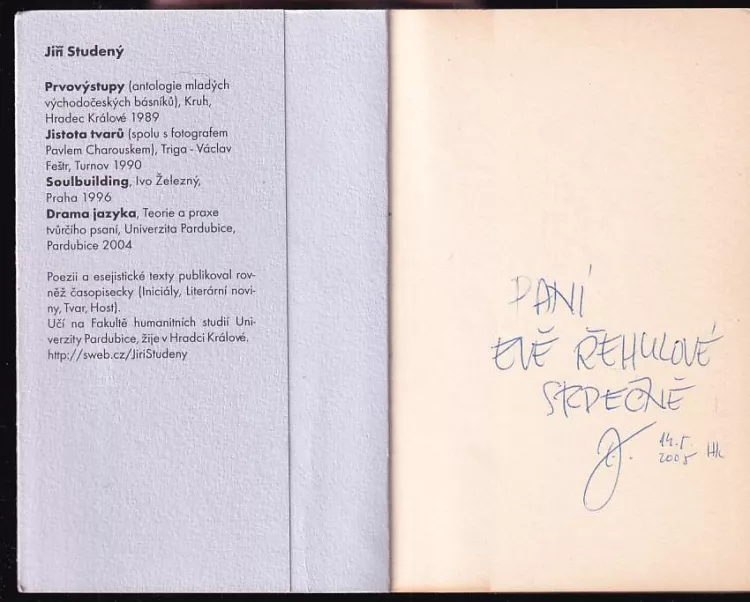 Jiří Studený
Prvovýstupy (antologie mladých
východočeských básníků), Kruh,
Hradec Králové 1989
Jistota tvarů (spolu s fotografem
Pavlem Charouskem), Triga - Václav
Feštr, Turnov 1990
Soulbuilding, Ivo Železný,
Praha 1996
Drama jazyka, Teorie a praxe
tvůrčího psaní, Univerzita Pardubice,
Pardubice 2004
Poezii a esejistické texty publikoval rov-
něž časopisecky (Iniciály, Literární novi-
ny, Tvar, Host).
Učí na Fakultě humanitních studií Uni-
verzity Pardubice, žije v Hradci Králové.
http://sweb.cz/JiriStudeny
PANÍ
EVĚ ŘEHULOVÉ
SRDEČNĚ
14.5.
2005 HK